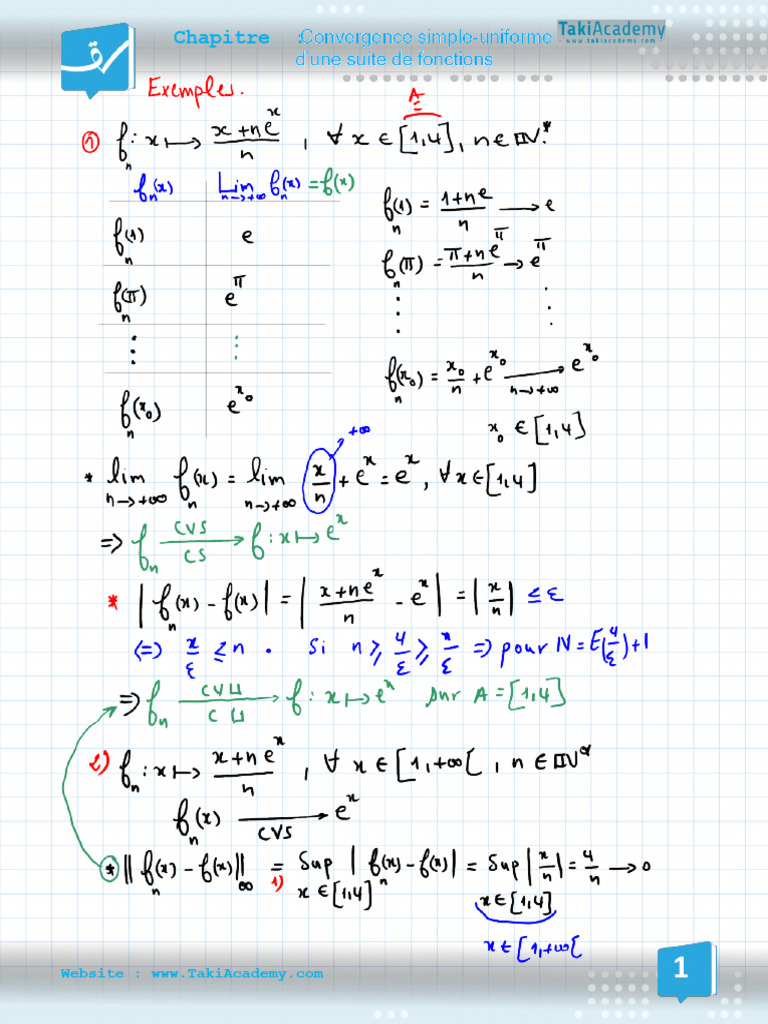 Chapitre : Convergence simple-uniforme
d'une suite de fonctions
TakiAcademy
www.takiacademy.com
Exemples.
A
1) fₙ : x ↦ (x + neˣ)/n , ∀ x ∈ [1,4] , n ∈ ℕ*.
fₙ(x) | Lim_{n→+∞} fₙ(x) = f(x)
fₙ(1) | e
fₙ(π) | e^π
⋮ | ⋮
fₙ(x₀) | e^{x₀}
fₙ(1) = (1+ne)/n ⟶ e
fₙ(π) = (π+ne^π)/n → e^π
⋮ ⋮
fₙ(x₀) = x₀/n + e^{x₀} ⟶_{n→+∞} e^{x₀}
x₀ ∈ [1,4]
+∞
* lim_{n→+∞} fₙ(x) = lim_{n→+∞} x/n + eˣ = eˣ, ∀ x ∈ [1,4]
⇒ fₙ —CVS/CS→ f : x ↦ eˣ
* |fₙ(x) - f(x)| = |(x+neˣ)/n - eˣ| = |x/n| ≤ ε
⇔ x/ε ≤ n . Si n ≥ 4/ε ≥ x/ε ⇒ pour N = E(4/ε)+1
⇒ fₙ —CVU/CU→ f : x ↦ eˣ sur A = [1,4]
2) fₙ : x ↦ (x + n eˣ)/n , ∀ x ∈ [1,+∞[ , n ∈ ℕ*
fₙ(x) —CVS→ eˣ
* ‖fₙ(x) - f(x)‖_∞ =_{1)} Sup_{x∈[1,4]} |fₙ(x) - f(x)| = Sup_{x∈[1,4]} |x/n| = 4/n → 0
x ∈ [1,+∞[
Website : www.TakiAcademy.com
1